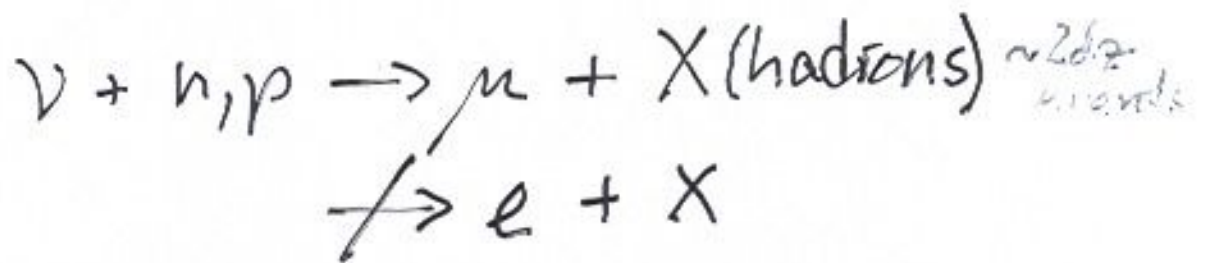 ν + n,p → μ + X (hadrons)
↛ e + X